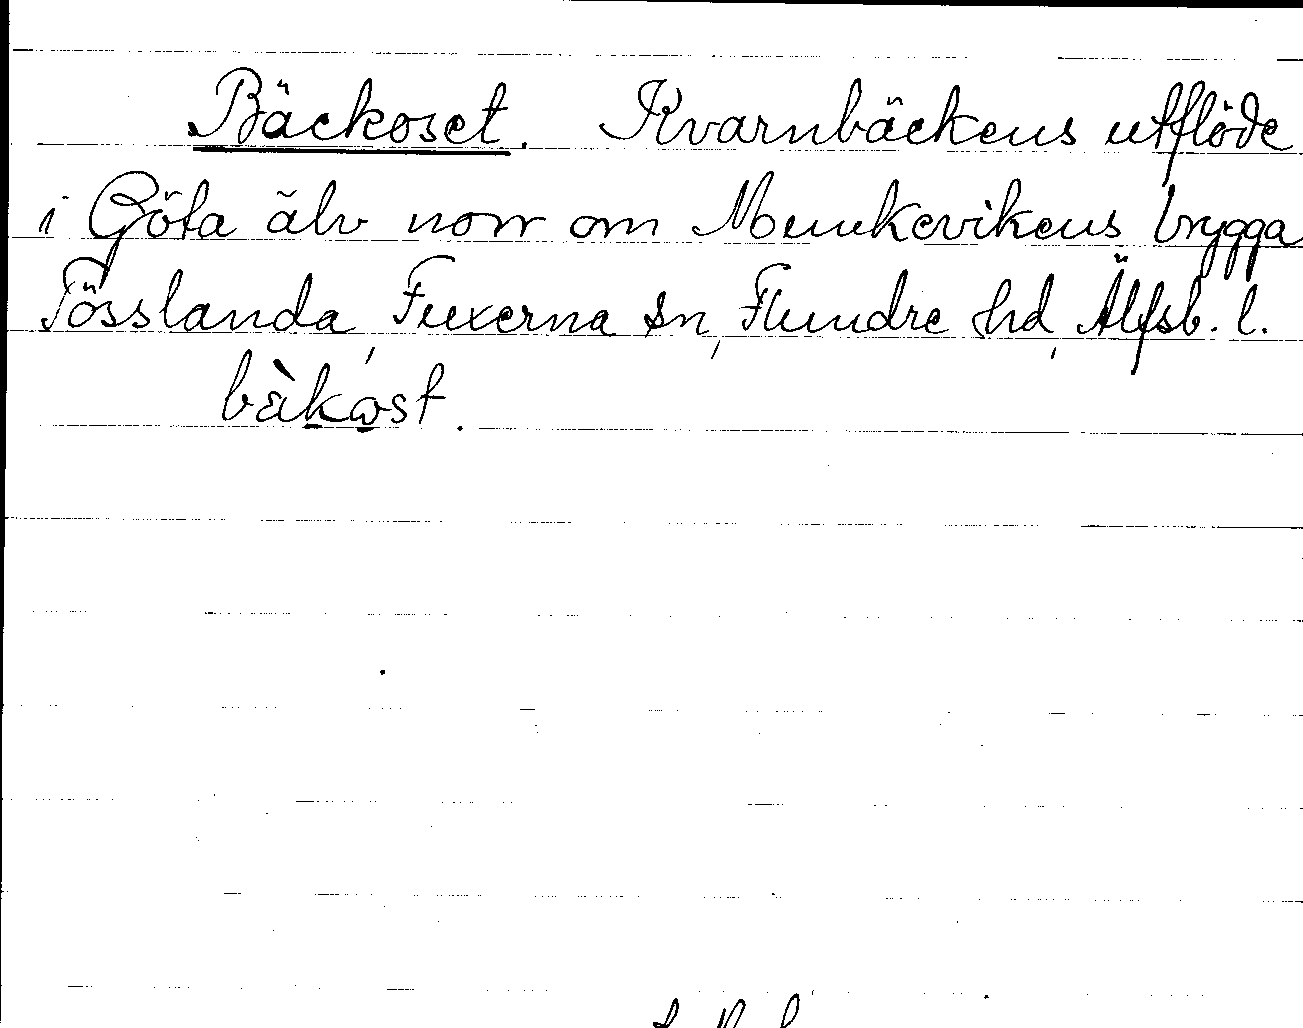 Bäckoset. Kvarnbäckens utflöde
i Göta älv norr om Munkevikens brygga
Tösslanda, Fuxerna sn, Flundre hd, Älfsb. l.
bàkost.